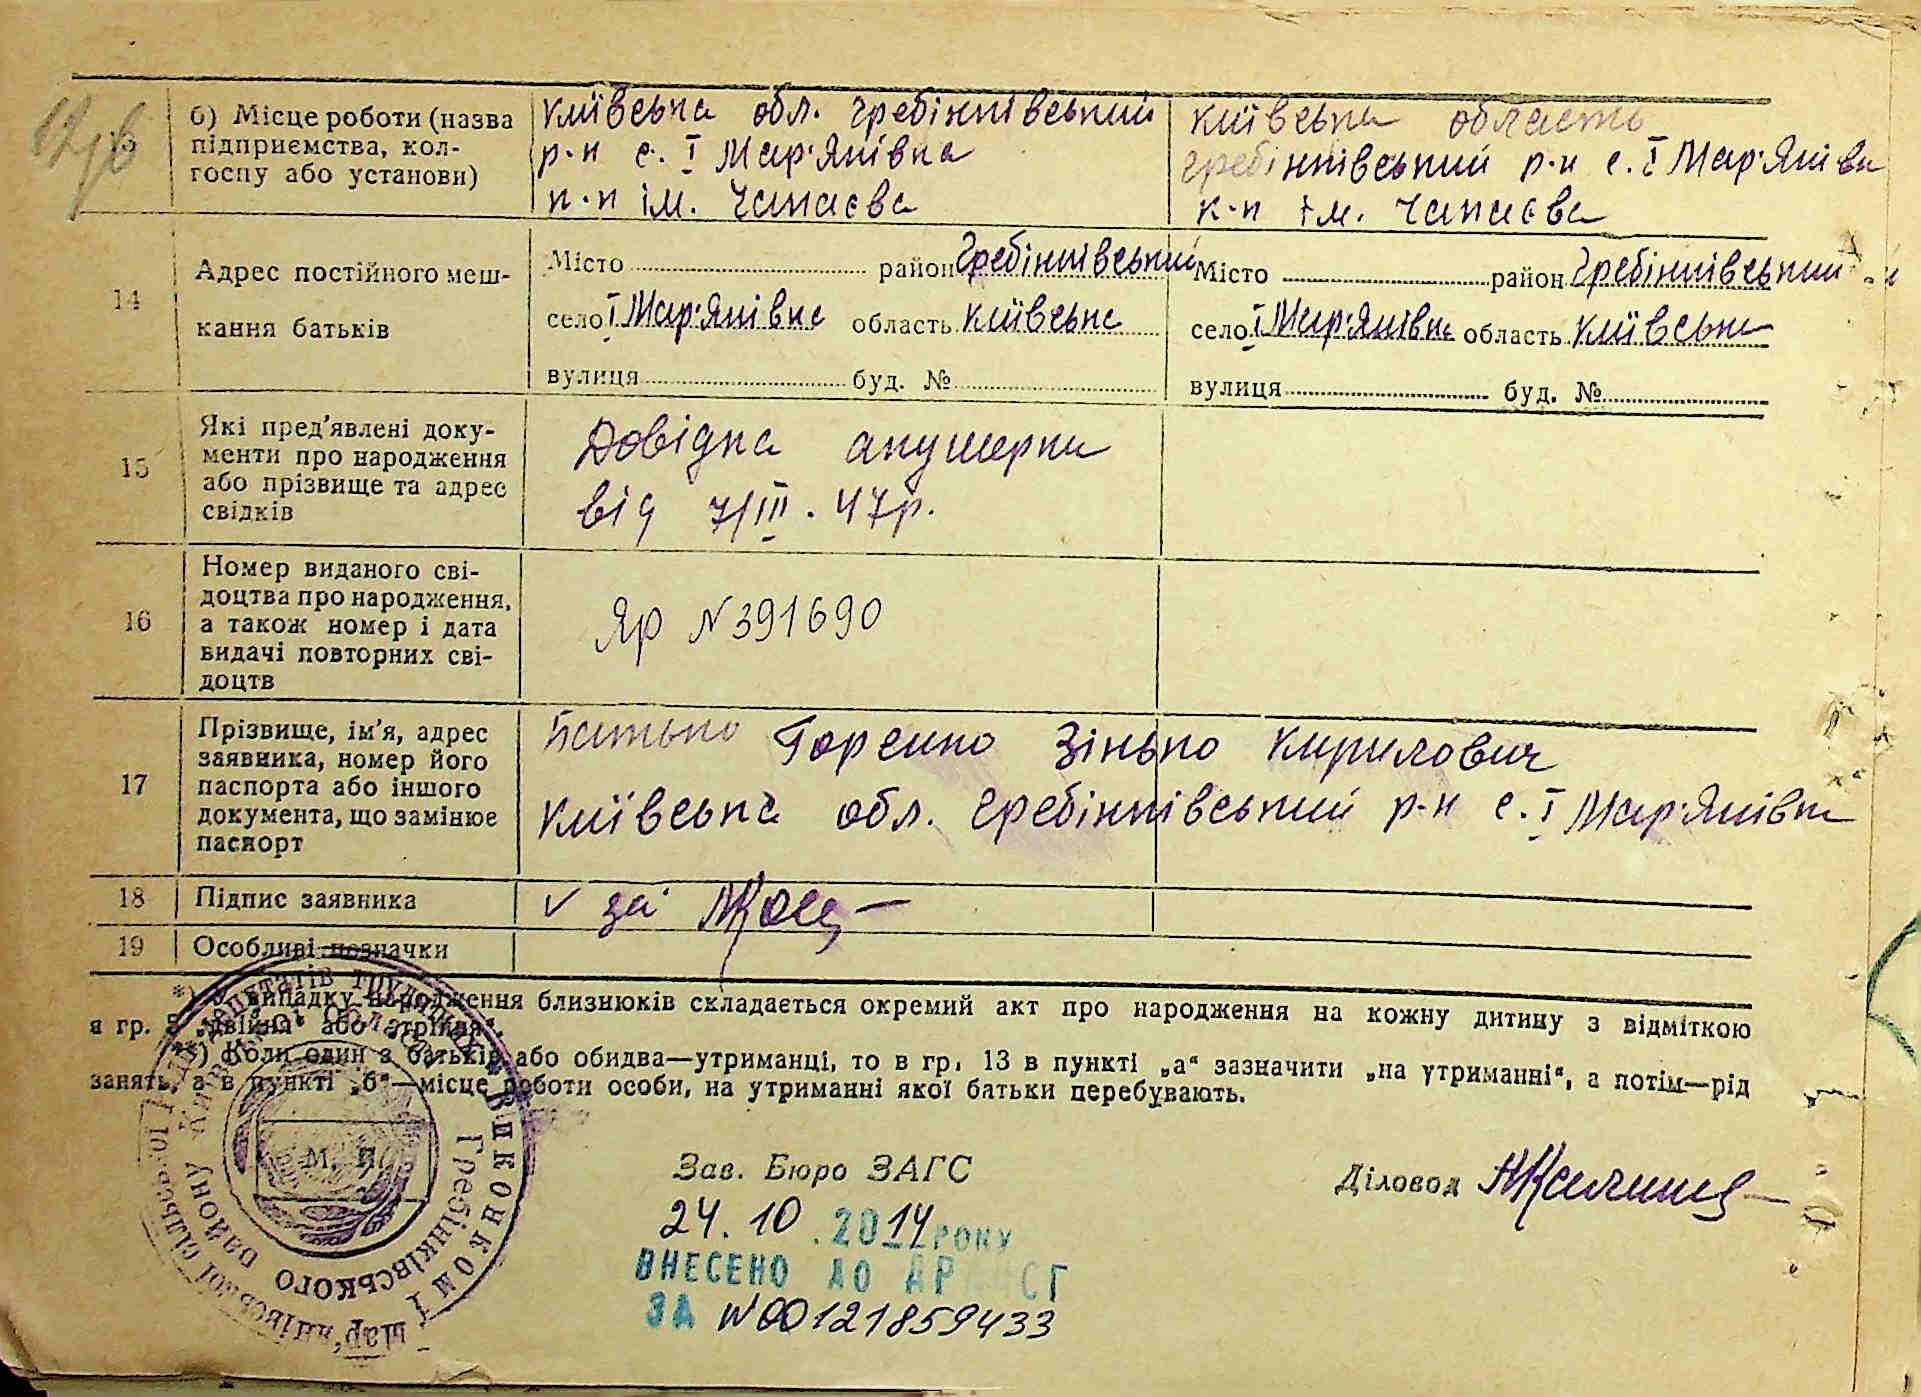 12/б
б) Місце роботи (назва підприємства, колгоспу або установи)
Київська обл. Гребінківський
р-н с. І Мар'янівка
к-п ім. Чапаєва
Київська область
Гребінківський р-н с. І Мар'янівка
к-п ім. Чапаєва
14
Адрес постійного меш-
кання батьків
Місто район Гребінківський
село І Мар'янівка область Київська
вулиця буд. №
Місто район Гребінківський
село І Мар'янівка область Київська
вулиця буд. №
15
Які пред'явлені доку-
менти про народження
або прізвище та адрес
свідків
Довідка акушерки
від 7/III. 47р.
16
Номер виданого сві-
доцтва про народження,
а також номер і дата
видачі повторних сві-
доцтв
Яр N 391690
17
Прізвище, ім'я, адрес
заявника, номер його
паспорта або іншого
документа, що замінює
паспорт
Батько Горенко Зінько Кирилович
Київська обл. Гребінківський р-н с. І Мар'янівка
18
Підпис заявника
за
19
Особливі позначки
*) У випадку народження близнюків складається окремий акт про народження на кожну дитину з відміткою
в гр. 5 „двійня“ або „трійня“.
**) Коли один з батьків або обидва—утриманці, то в гр. 13 в пункті „а“ зазначити „на утриманні“, а потім—рід
занять, а в пункті „б“—місце роботи особи, на утриманні якої батьки перебувають.
М. П.
Виконком І Мар'янівської сільської Ради депутатів трудящих
Гребінківського району Київської області
Зав. Бюро ЗАГС
Діловод
24.10.2014 РОКУ
ВНЕСЕНО ДО ДРАЦСГ
ЗА N00121859433